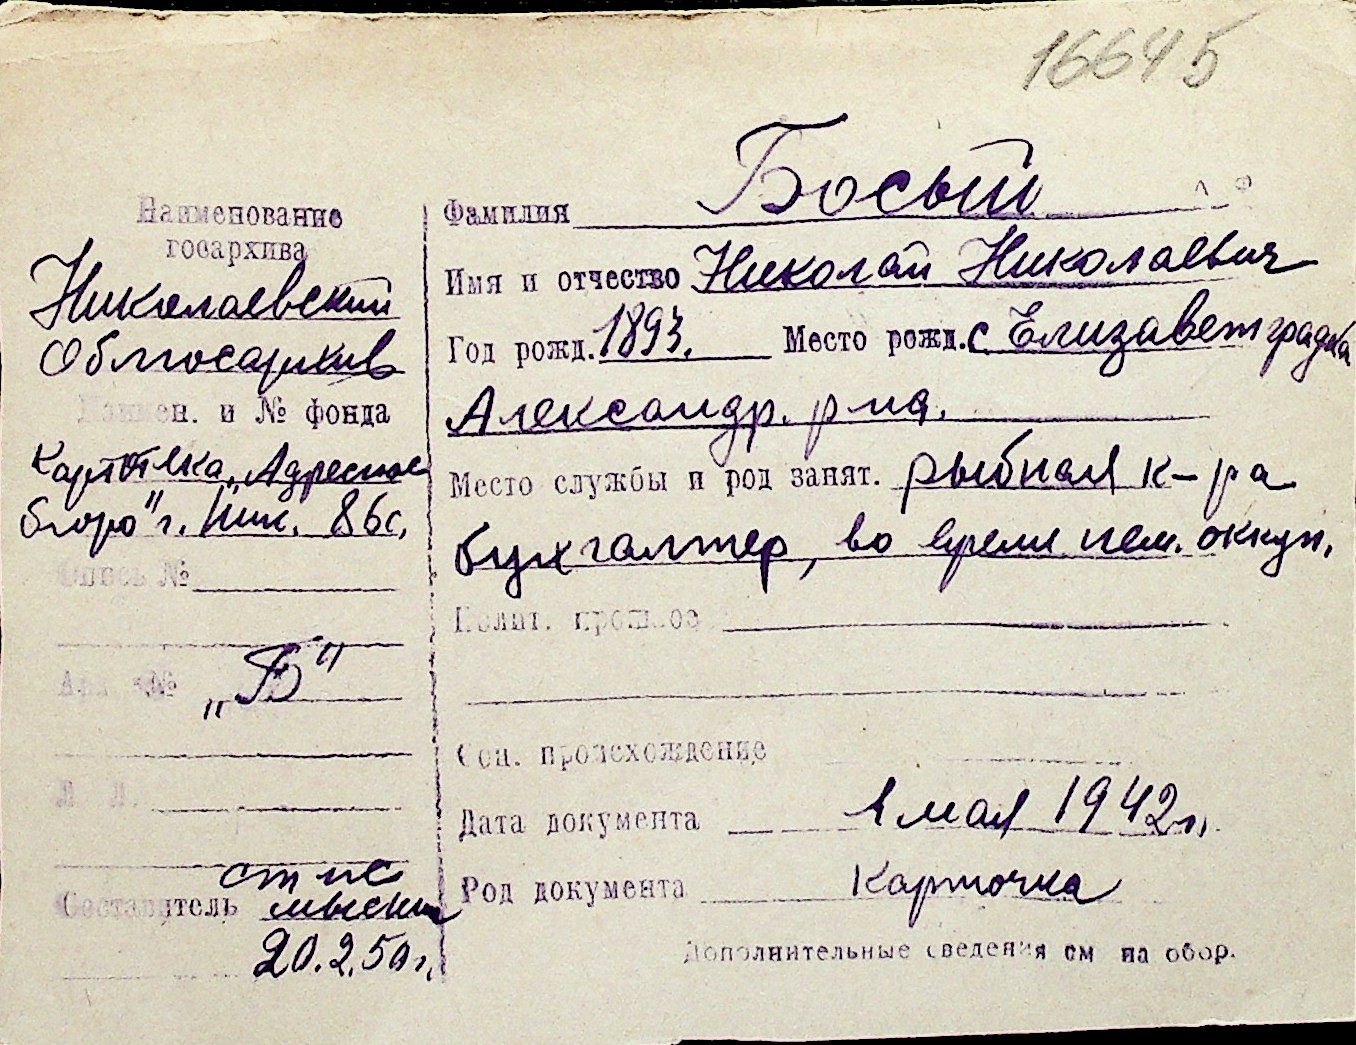 16645
Наименование
госархива
Николаевский
Облгосархив
Наимен. и № фонда
Картотека „Адресное
бюро" г. Ник. 86с.
Опись №
Арх. №
„Б"
Л. Л.
ст. н/с
Составитель
20.2.50 г.
Фамилия Босый
Имя и отчество Николай Николаевич
Год рожд. 1893. Место рожд. с Елизаветградка
Александр. р-на.
Место службы и род занят. рыбная к-ра
бухгалтер, во время нем. оккуп.
Полит. прошлое
Соц. происхождение
Дата документа 1 мая 1942 г.
Род документа Карточка
Дополнительные сведения см на обор.